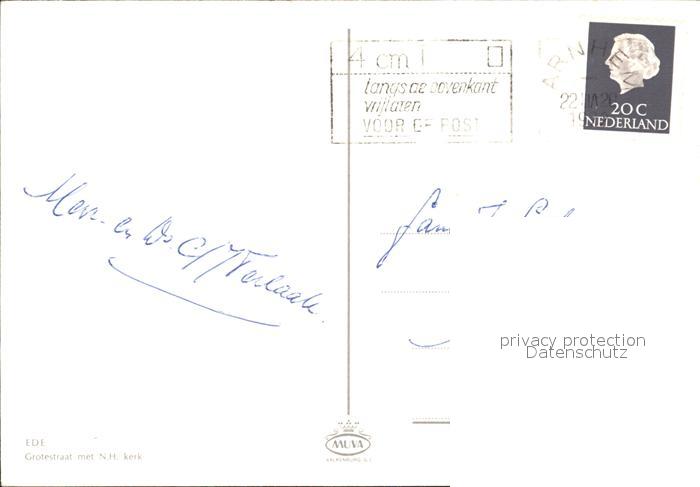 4 cm
langs de bovenkant
vrijlaten
VOOR DE POST
ARNHEM
22
20 C
NEDERLAND
Mevr. en Ds. C. J. Verlaak.
Fam
privacy protection
Datenschutz
EDE
Grotestraat met N.H. kerk
MUVA
VALKENBURG